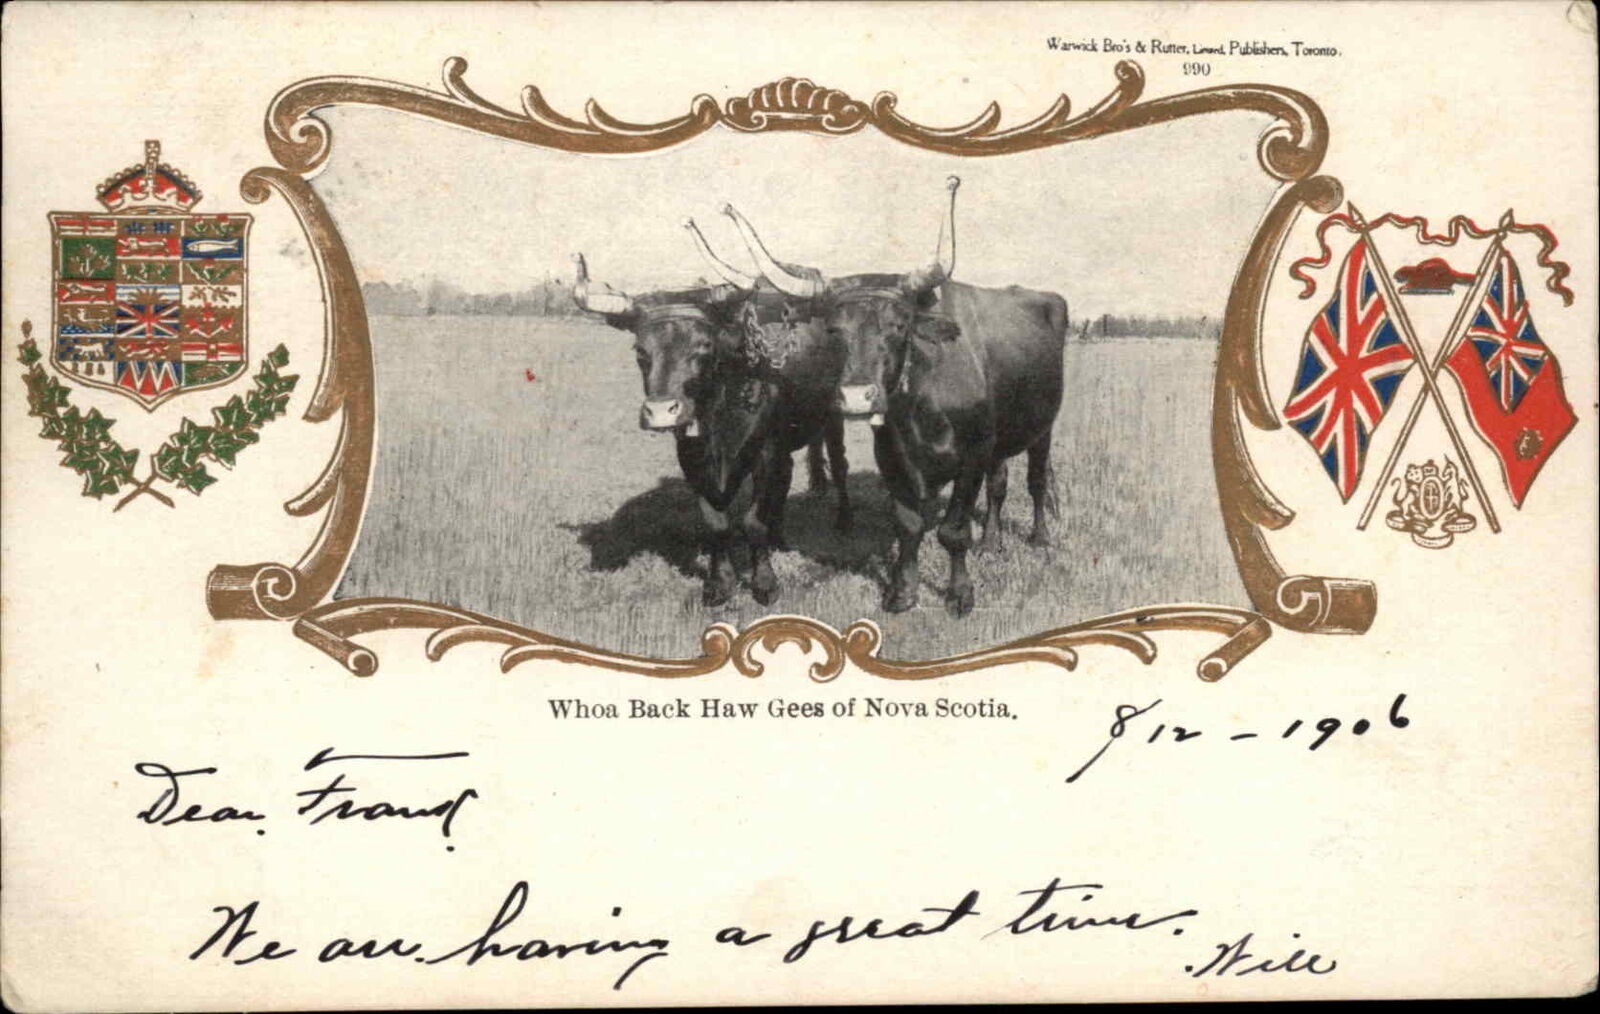 Warwick Bro's & Rutter, Limited, Publishers, Toronto.
990
Whoa Back Haw Gees of Nova Scotia.
8/12 - 1906
Dear Frank
We are having a great time.
Will